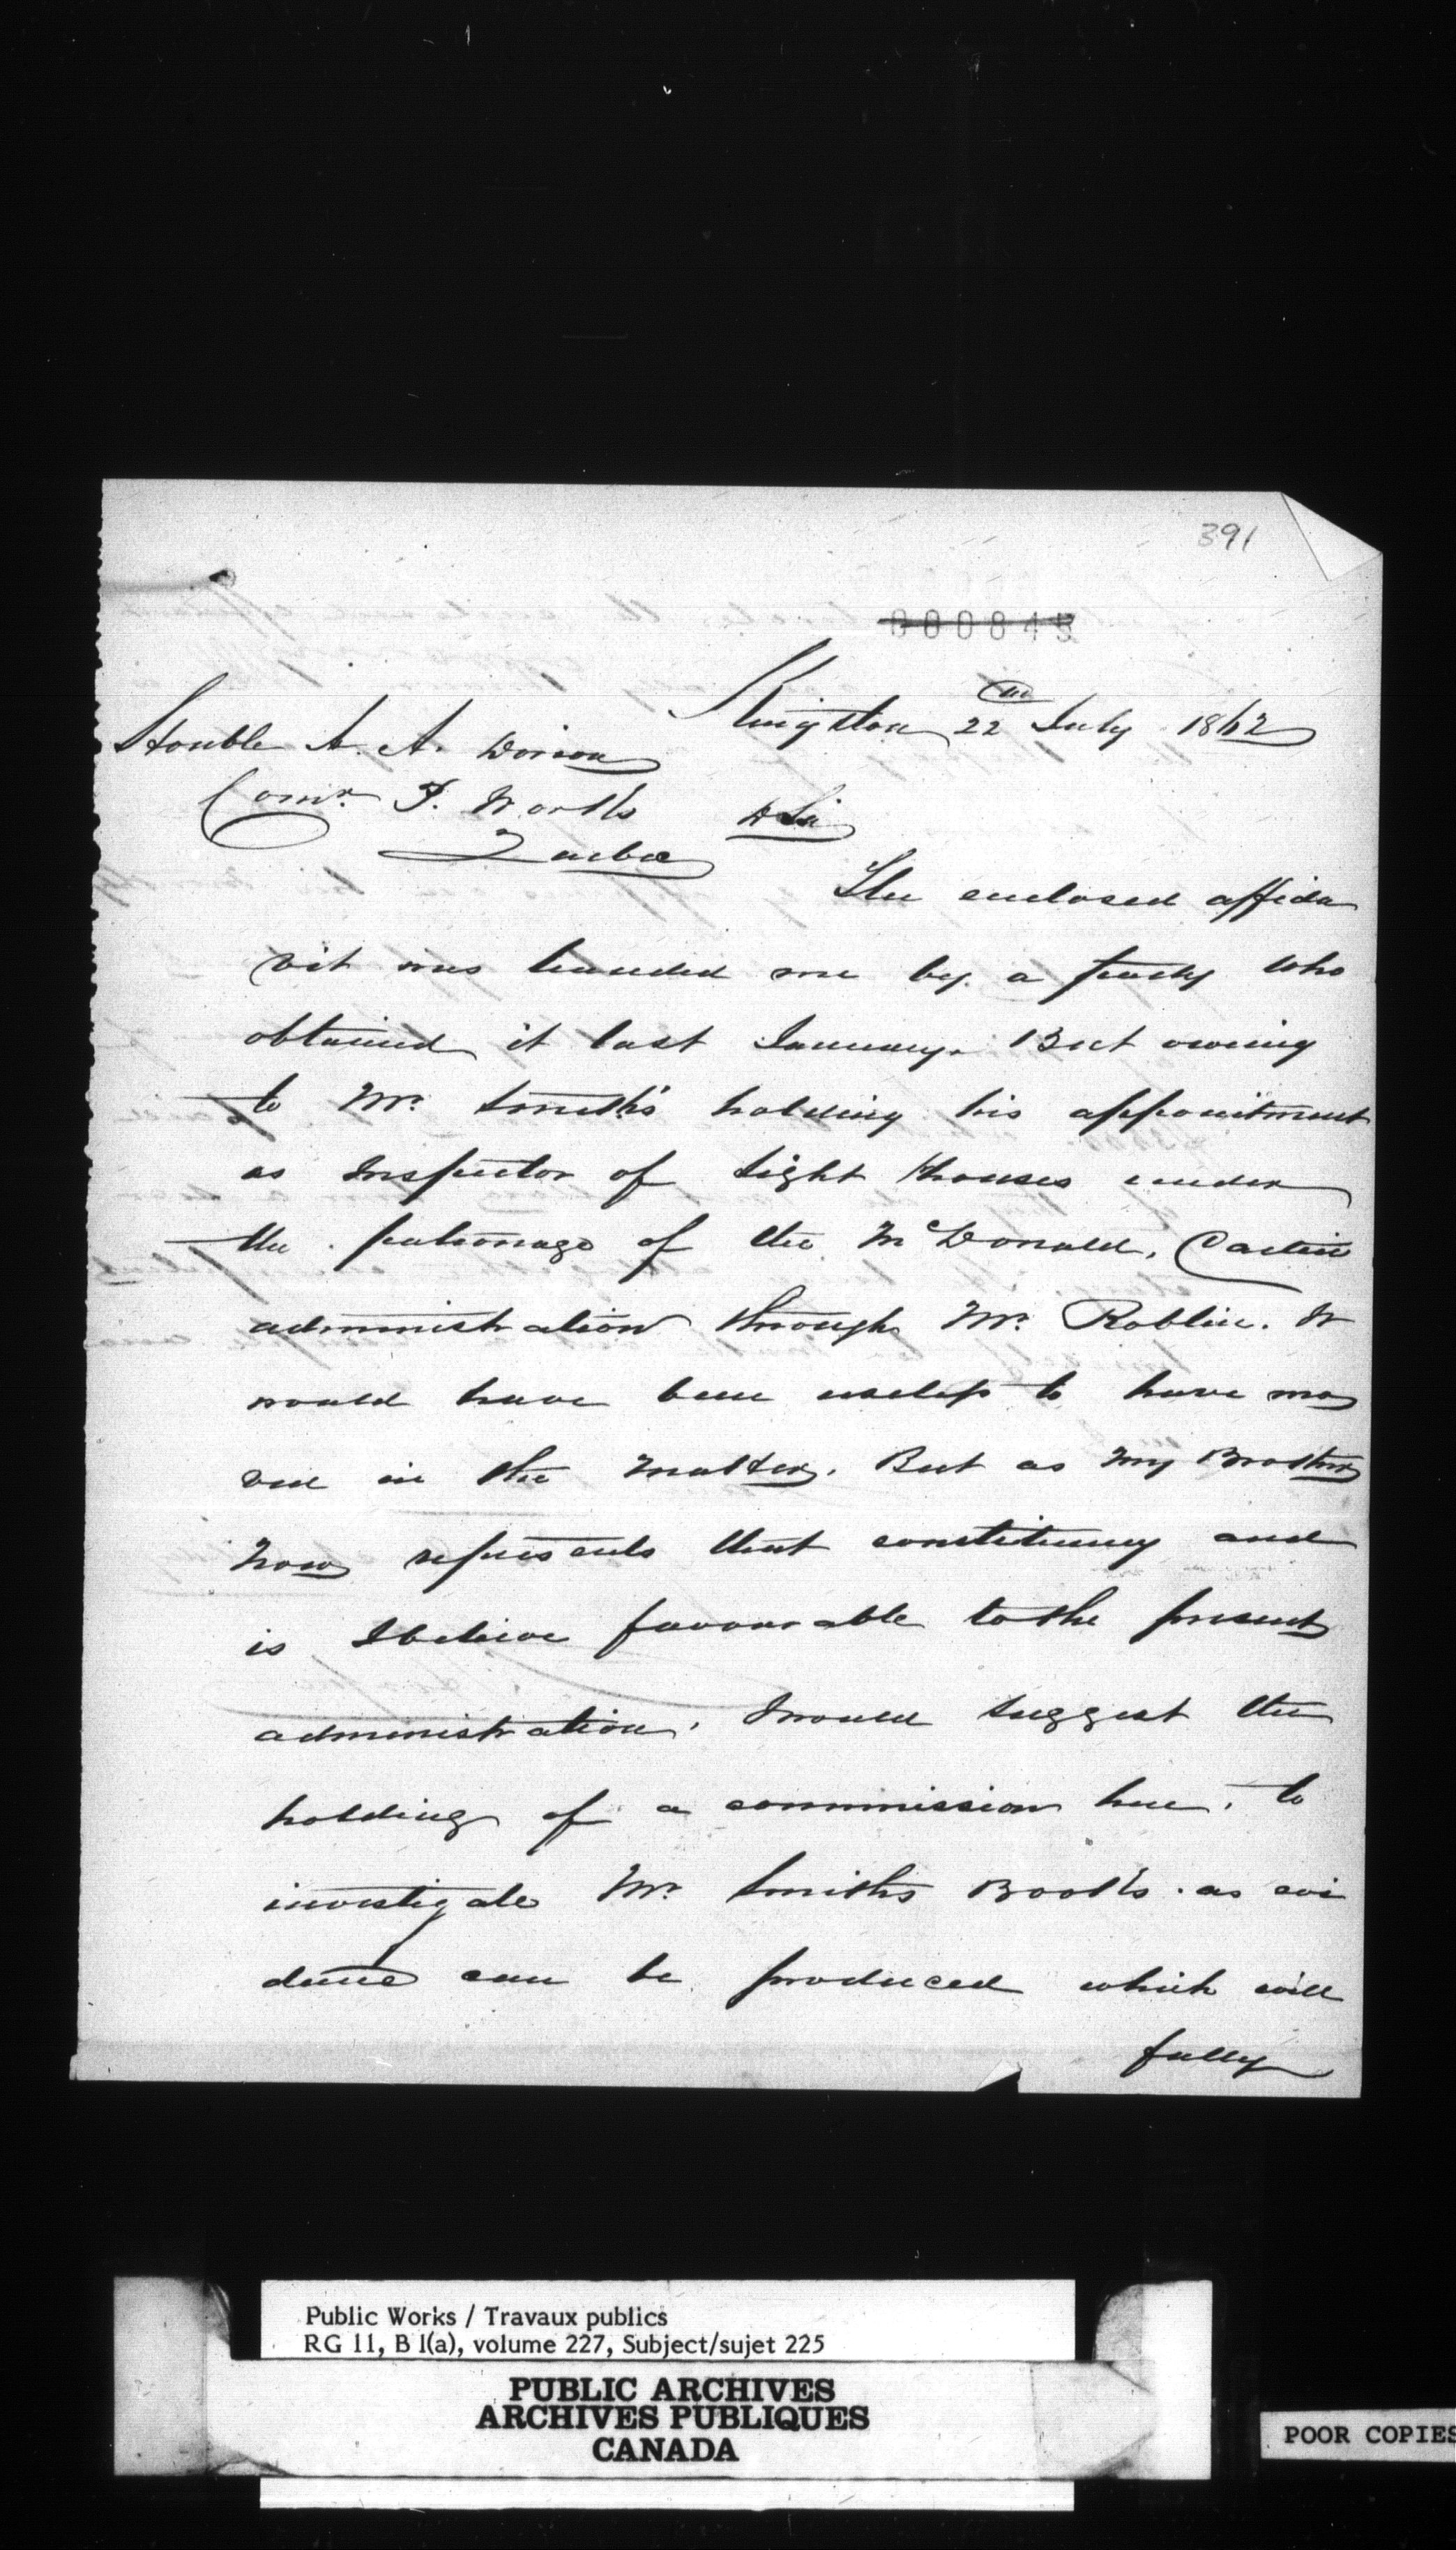 391
000845
Kingston 22nd July 1862
Honble A. A. Dorion
Comr. P. Works
D Sir
Quebec
The enclosed affida
vit was handed me by a party who
obtained it last January. But owing
to Mr. Smith's holding his appointment
as Inspector of Light Houses under
the patronage of the McDonald, Cartier
administration through Mr. Roblin. It
would have been useless to have mo
ved in the matter. But as my Brother
now represents that constituency and
is I believe favourable to the present
administration, I would suggest the
holding of a commission here, to
investigate Mr. Smiths Books. as evi
dence can be produced which will
fully
Public Works / Travaux publics
RG 11, B 1(a), volume 227, Subject/sujet 225
PUBLIC ARCHIVES
ARCHIVES PUBLIQUES
CANADA
POOR COPIES